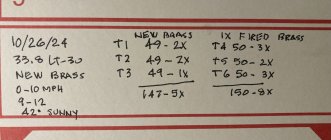 NEW BRASS 1X FIRED BRASS
10/26/24 T1 49 - 2X T4 50 - 3X
33.8 LT-30 T2 49 - 2X T5 50 - 2X
NEW BRASS T3 49 - 1X T6 50 - 3X
0-10 MPH 147-5X 150-8X
9-12
42° SUNNY